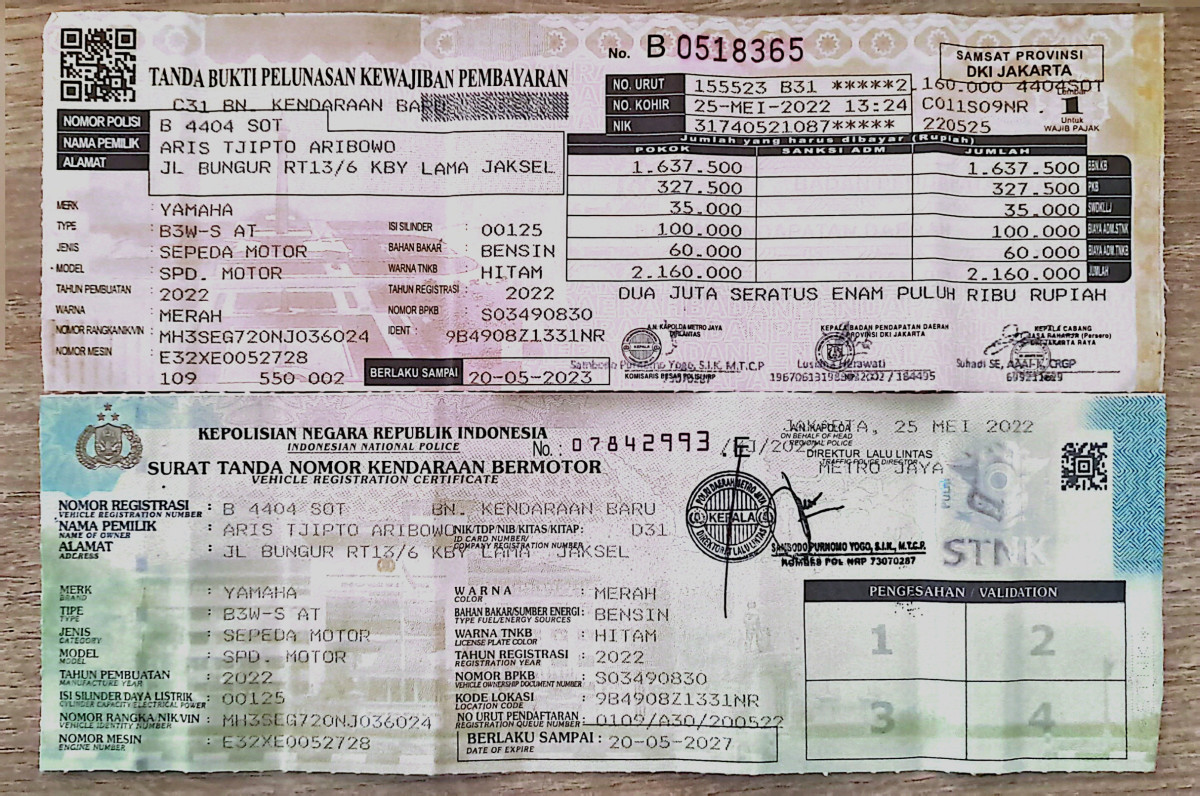 No. B 0518365
SAMSAT PROVINSI
DKI JAKARTA
TANDA BUKTI PELUNASAN KEWAJIBAN PEMBAYARAN
NO. URUT 155523 B31 *****2.160.000 4404SOT
C31 BN. KENDARAAN BARU
NO. KOHIR 25-MEI-2022 13:24 C011S09NR
1
Untuk
WAJIB PAJAK
NOMOR POLISI B 4404 SOT
NIK 31740521087***** 220525
NAMA PEMILIK ARIS TJIPTO ARIBOWO
ALAMAT JL BUNGUR RT13/6 KBY LAMA JAKSEL
Jumlah yang harus dibayar (Rupiah)
POKOK SANKSI ADM JUMLAH
1.637.500 1.637.500 BBN.KB
327.500 327.500 PKB
35.000 35.000 SWDKLLJ
100.000 100.000 BIAYA ADM.STNK
60.000 60.000 BIAYA ADM.TNKB
2.160.000 2.160.000 JUMLAH
DUA JUTA SERATUS ENAM PULUH RIBU RUPIAH
MERK : YAMAHA
TYPE : B3W-S AT ISI SILINDER : 00125
JENIS : SEPEDA MOTOR BAHAN BAKAR : BENSIN
MODEL : SPD. MOTOR WARNA TNKB : HITAM
TAHUN PEMBUATAN : 2022 TAHUN REGISTRASI : 2022
WARNA : MERAH NOMOR BPKB : S03490830
NOMOR RANGKA/NIK/VIN : MH3SEG720NJ036024 IDENT : 9B4908Z1331NR
NOMOR MESIN : E32XE0052728
109 550 002 BERLAKU SAMPAI 20-05-2023
A.N. KAPOLDA METRO JAYA
DIRLANTAS
KEPALA BADAN PENDAPATAN DAERAH
PROVINSI DKI JAKARTA
KEPALA CABANG
JASA RAHARJA (Persero)
DKI JAKARTA RAYA
KOMISARIS BESAR POLISI NRP
KEPOLISIAN NEGARA REPUBLIK INDONESIA
INDONESIAN NATIONAL POLICE
No.: 07842993
SURAT TANDA NOMOR KENDARAAN BERMOTOR
VEHICLE REGISTRATION CERTIFICATE
JAKARTA, 25 MEI 2022
A.N. KAPOLDA
ON BEHALF OF HEAD
REGIONAL POLICE
DIREKTUR LALU LINTAS
TRAFFIC POLICE DIRECTOR
METRO JAYA
POLRI DAERAH METRO JAYA
KEPALA
DIREKTORAT LALU LINTAS
SAMBODO PURNOMO YOGO, S.I.K., M.T.C.P.
KOMBES POL NRP 73070287
STNK
NOMOR REGISTRASI : B 4404 SOT BN. KENDARAAN BARU
VEHICLE REGISTRATION NUMBER
NAMA PEMILIK : ARIS TJIPTO ARIBOWO NIK/TDP/NIB/KITAS/KITAP: D31
NAME OF OWNER ID CARD NUMBER/
COMPANY REGISTRATION NUMBER
ALAMAT : JL BUNGUR RT13/6 KBY LAMA JAKSEL
ADDRESS
MERK : YAMAHA WARNA : MERAH
BRAND COLOR
TIPE : B3W-S AT BAHAN BAKAR/SUMBER ENERGI : BENSIN
TYPE TYPE FUEL/ENERGY SOURCES
JENIS : SEPEDA MOTOR WARNA TNKB : HITAM
CATEGORY LICENSE PLATE COLOR
MODEL : SPD. MOTOR TAHUN REGISTRASI : 2022
MODEL REGISTRATION YEAR
TAHUN PEMBUATAN : 2022 NOMOR BPKB : S03490830
MANUFACTURE YEAR VEHICLE OWNERSHIP DOCUMENT NUMBER
ISI SILINDER/DAYA LISTRIK : 00125 KODE LOKASI : 9B4908Z1331NR
CYLINDER CAPACITY/ELECTRICAL POWER LOCATION CODE
NOMOR RANGKA/NIK/VIN : MH3SEG720NJ036024 NO URUT PENDAFTARAN : 0109/A30/200522
VEHICLE IDENTITY NUMBER REGISTRATION QUEUE NUMBER
NOMOR MESIN : E32XE0052728 BERLAKU SAMPAI : 20-05-2027
ENGINE NUMBER DATE OF EXPIRE
PENGESAHAN / VALIDATION
1 2
3 4